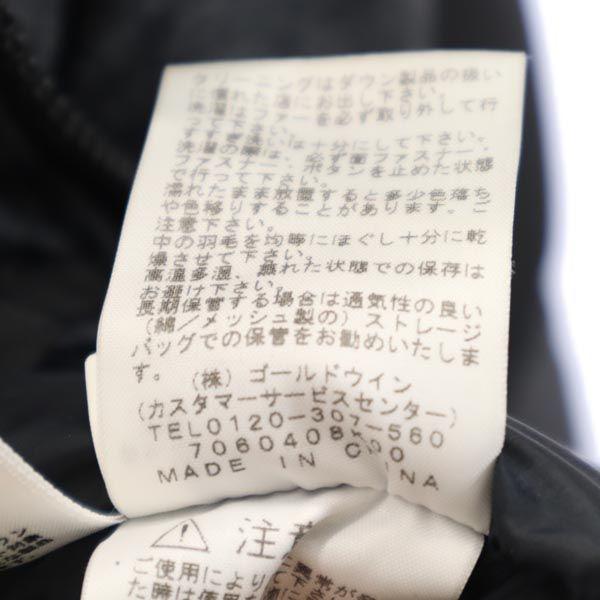 クリーニングはダウン製品の扱い
に慣れた店にお出し下さい。
洗濯はファーを必ず取り外して行
って下さい。
すすぎ洗いは十分にして下さい。
洗濯の際は、必ず面ファスナー、
ファスナー、ボタンを止めた状態
で行って下さい。
濡れたまま放置すると多少色落ち
や色移りすることがあります。ご
注意下さい。
中の羽毛を均等にほぐし十分に乾
燥させて下さい。
高温多湿、蒸れた状態での保存は
お避け下さい。
長期保管する場合は通気性の良い
(綿/メッシュ製の)ストレージ
バッグでの保管をお勧めいたしま
す。
(株)ゴールドウイン
(カスタマーサービスセンター)
TEL0120-307-560
7060408X00
MADE IN CHINA
注意
ご使用によりて
た時は使用を